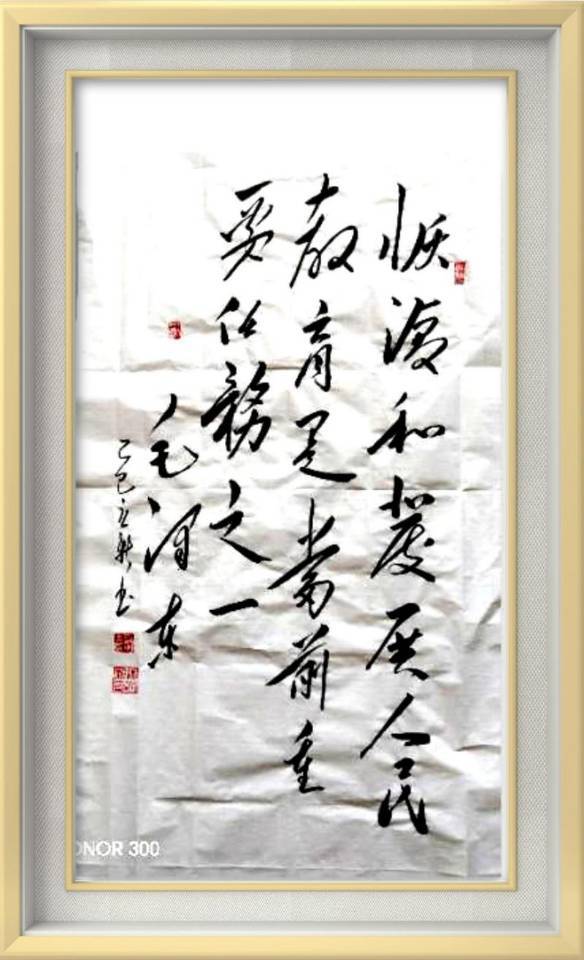 恢復和發展人民
教育是當前重
要任務之一
毛澤東
乙巳立新书
ONOR 300